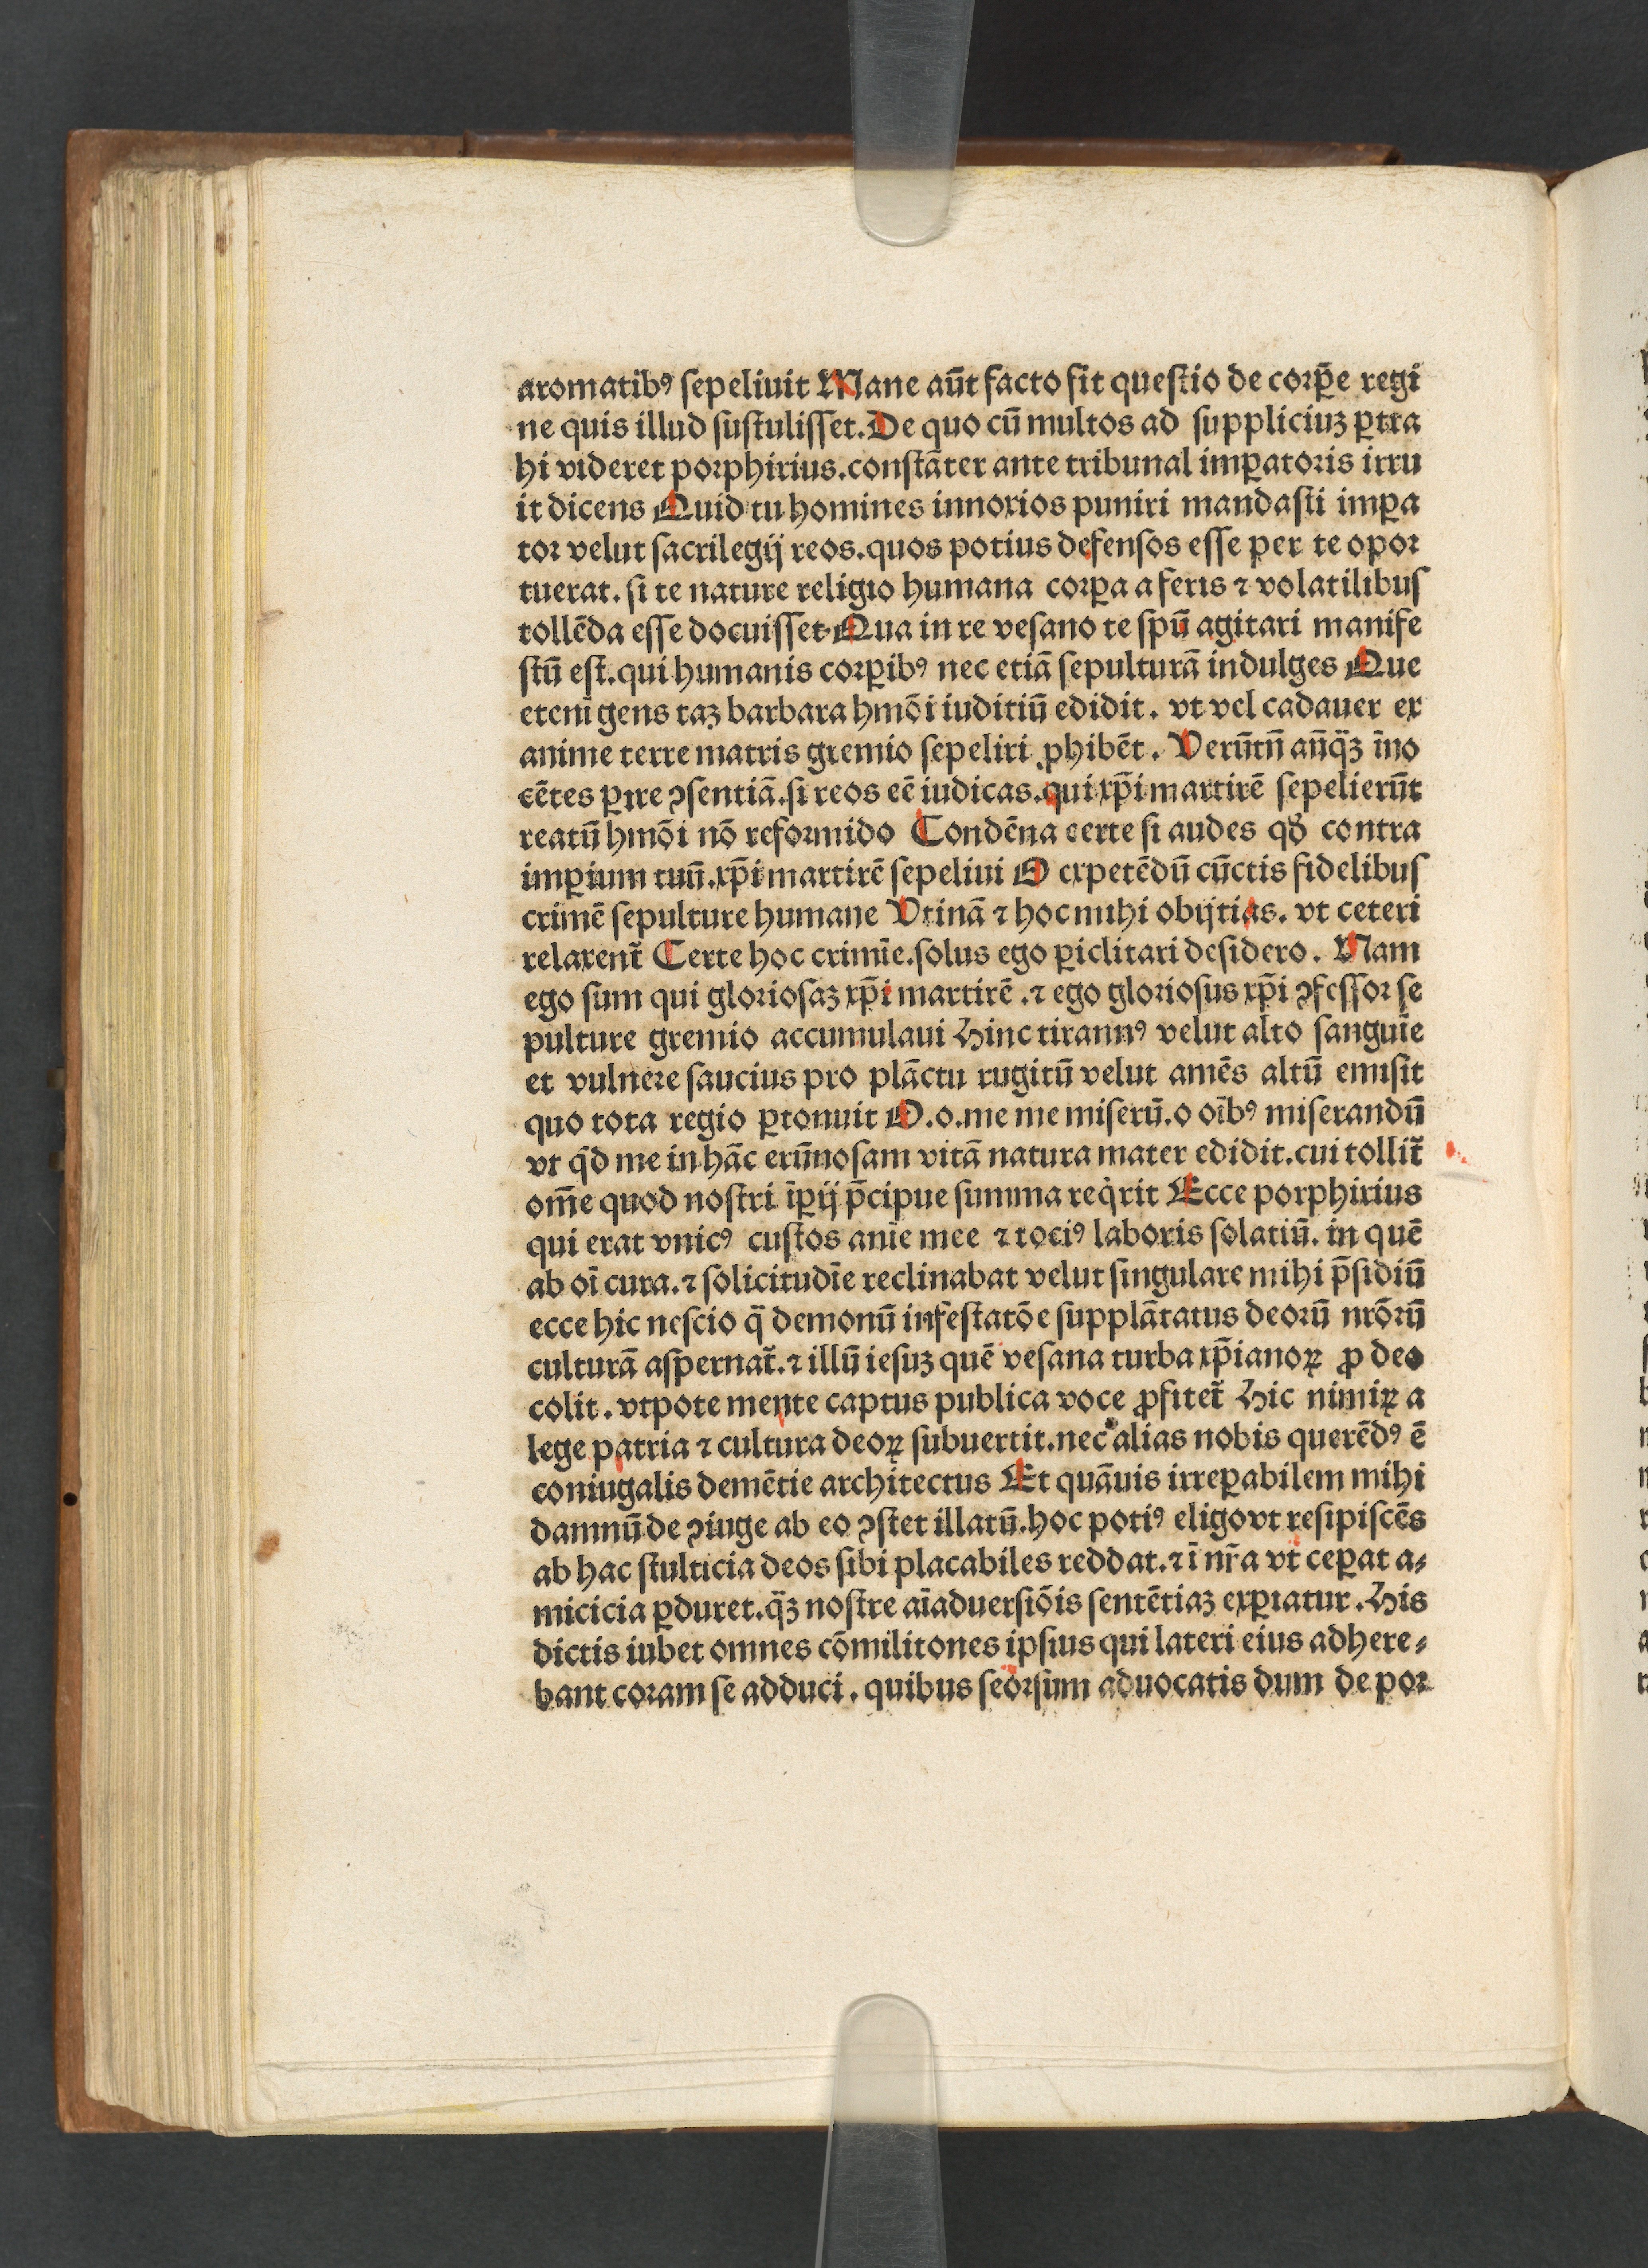 aromatibꝰ ſepeliuit Mane aūt facto fit queſtio de corꝑe regi
ne quis illud ſuſtuliſſet. De quo cū multos ad ſuppliciuz ꝑtra
hi videret porphirius. conſtāter ante tribunal imꝑatoris irru
it dicens Quid tu homines innoxios puniri mandaſti imꝑa
tor velut ſacrilegij reos. quos potius defenſos eſſe per te opor
tuerat. ſi te nature religio humana corꝑa a feris ⁊ volatilibuſ
tollēda eſſe docuiſſet Qua in re veſano te ſpū agitari manife
ſtū eſt. qui humanis corꝑibꝰ nec etiā ſepulturā indulges Que
etenī gens taꝫ barbara hmōi iuditiū edidit. vt vel cadauer ex
anime terre matris gremio ſepeliri ꝓhibēt. Verūtn̄ an̄qͣꝫ īno
cētes ꝑire ꝯſentiā. ſi reos eē iudicas. qui xp̄i martirē ſepelierūt
reatū hmōi nō reformido Condēna certe ſi audes qď contra
imꝑium tuū. xp̄i martirē ſepeliui O expetēdū cūctis fidelibuſ
crimē ſepulture humane Vtinā ⁊ hoc mihi obijtias. vt ceteri
relaxent̄ Certe hoc crimīe. ſolus ego ꝑiclitari deſidero. Nam
ego ſum qui glorioſaꝫ xp̄i martirē. ⁊ ego glorioſus xp̄i ꝯfeſſor ſe
pulture gremio accumulaui Hinc tirannꝰ velut alto ſanguīe
et vulnere ſaucius pro plāctu rugitū velut amēs altū emiſit
quo tota regio ꝑtonuit O. o. me me miſerū. o oībꝰ miſerandū
vt qͥd me in hāc erūnoſam vitā natura mater edidit. cui tollit̄
om̄e quod noſtri īꝑij p̄cipue ſumma reqͥrit Ecce porphirius
qui erat vnicꝰ cuſtos anīe mee ⁊ tociꝰ laboris ſolatiū. in quē
ab oī cura. ⁊ ſolicitudīe reclinabat velut ſingulare mihi p̄ſidiū
ecce hic neſcio qͣ demonū infeſtatōe ſupplātatus deorū nr̄orū
culturā aſpernat̄. ⁊ illū ieſuꝫ quē veſana turba xp̄ianoꝝ ꝓ deo
colit. vtpote mente captus publica voce ꝓfitet̄ Hic nimiꝝ a
lege patria ⁊ cultura deoꝝ ſubuertit. nec alias nobis querēdꝰ ē
coniugalis demētie architectus Et quāuis irreꝑabilem mihi
damnū de ꝯiuge ab eo ꝯſtet illatū. hoc potiꝰ eligo vt reſipiſcēs
ab hac ſtulticia deos ſibi placabiles reddat. ⁊ ī nr̄a vt ceꝑat a⸗
micicia ꝑduret. qͣꝫ noſtre aīaduerſiōis ſentētiaꝫ exꝑiatur. His
dictis iubet omnes cōmilitones ipſius qui lateri eius adhere⸗
bant coram ſe adduci. quibus ſeorſum aduocatis dum de por